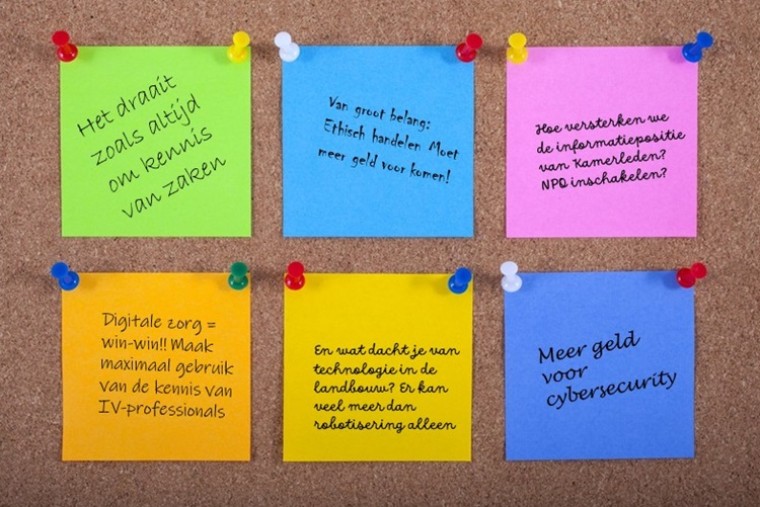 Het draait
zoals altijd
om kennis
van zaken
Van groot belang:
Ethisch handelen Moet
meer geld voor komen!
Hoe versterken we
de informatiepositie
van Kamerleden?
NPO inschakelen?
Digitale zorg =
win-win!! Maak
maximaal gebruik
van de kennis van
IV-professionals
En wat dacht je van
technologie in de
landbouw? Er kan
veel meer dan
robotisering alleen
Meer geld
voor
cybersecurity